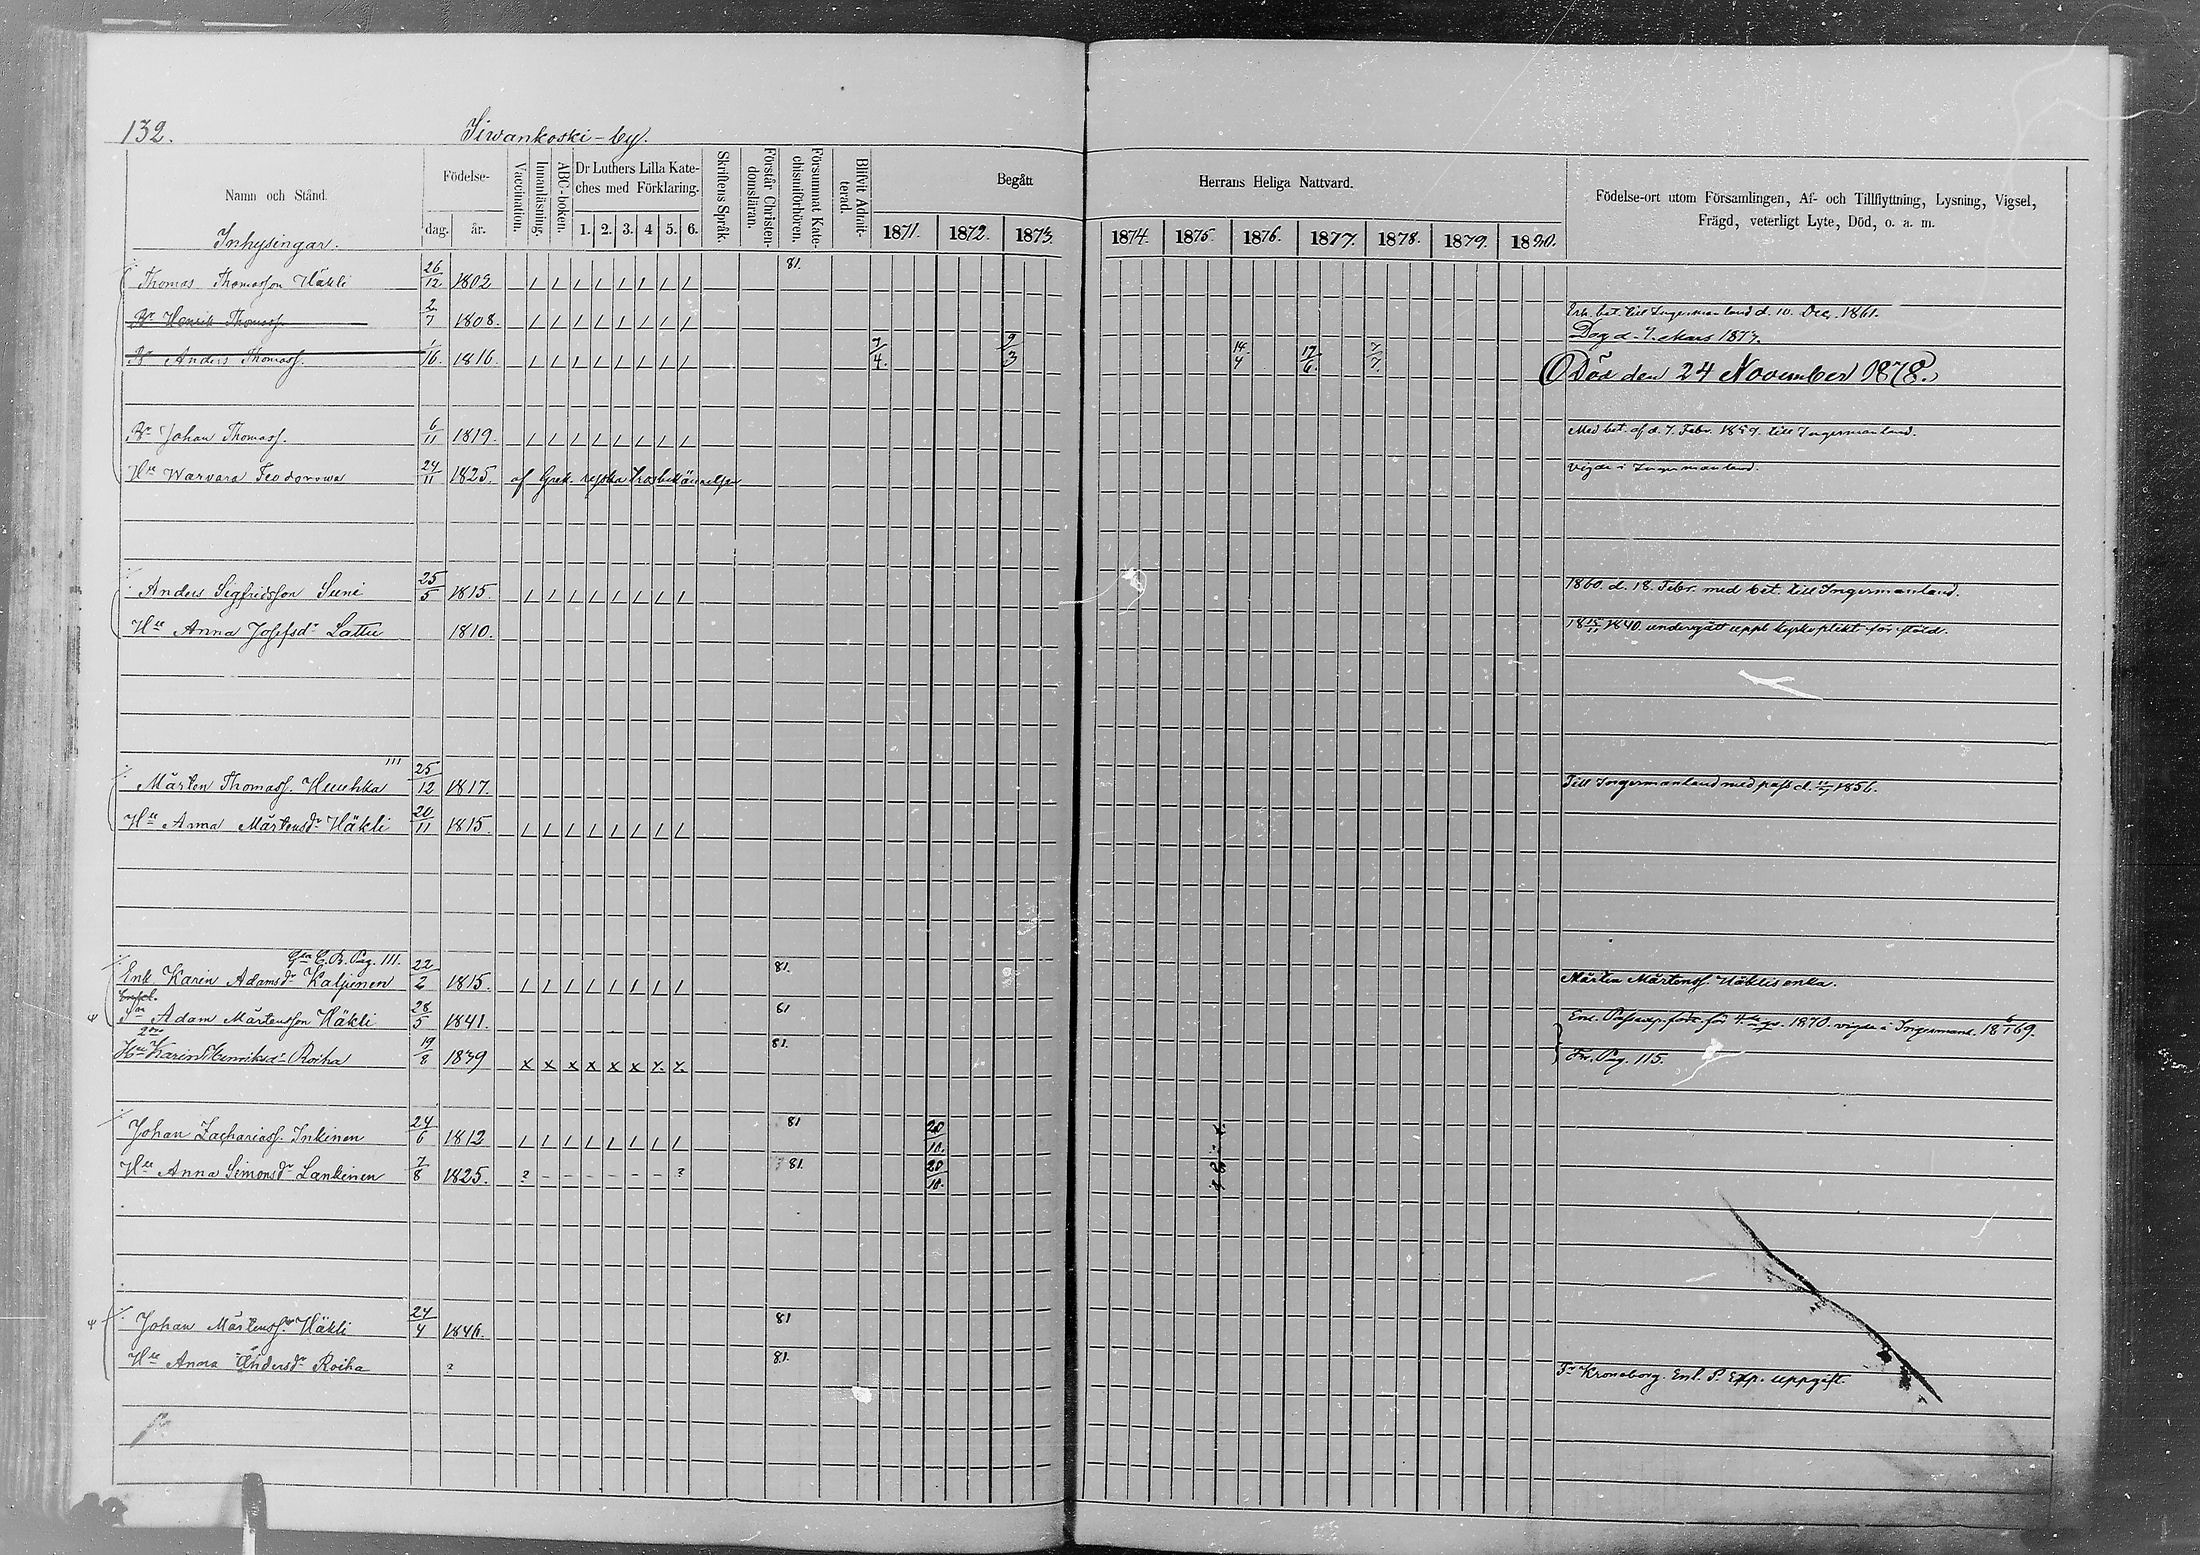 132. Siwankoski-by.
Namn och Stånd.
Födelse-
dag. år.
Vaccination.
Innanläsning.
ABC-boken.
Dr Luthers Lilla Kate-
ches med Förklaring.
1. 2. 3. 4 5. 6.
Skriftens Språk.
Förstår Christen-
domsläran.
Försummat Kate-
chismiförhören.
Blifvit Admit-
terad.
Begått Herrans Heliga Nattvard.
1871. 1872. 1873. 1874. 1875. 1876. 1877. 1878. 1879. 1880.
Födelse-ort utom Församlingen, Af- och Tillflyttning, Lysning, Vigsel,
Frägd, veterligt Lyte, Död, o. a. m.
Inhysingar.
Thomas Thomasson Häkli 26/12 1802 / / / / / / / / 81.
Br Henrik Thomass. 2/7 1808. / / / / / / / / Erh. bet. till Ingermanland d. 10. Dec. 1861.
Dog d. 7. Mars 1877.
Br Anders Thomass. 1/16. 1816. / / / / / / / / 7/4. 9/3 14/4 17/6. 7/7. Död den 24 November 1878.
Br Johan Thomass. 6/11 1819. / / / / / / / / Med bet. af d. 7. Febr. 1859. till Ingermanland.
Hu Warvara Feodorowa 24/11 1825. af Grek. ryska trosbekännelsen vigde i Ingermanland.
Anders Sigfridsson Suni 25/5 1815. / / / / / / / / 1860. d. 18. Febr. med bet. till Ingermanland.
Hu Anna Josefsdr Lattu 1810. 1840. undergått uppb. kyrkoplikt för stöld.
111
Mårten Thomass. Heuhka 25/12 1817. Till Ingermanland med pass d. 1856.
Hu Anna Mårtensdr Häkli 20/11 1815. / / / / / / / /
C. B. Pag. 111.
Enk Karin Adamsdr Kalpinen 22/2 1815. / / / / / / / / 81. Mårten Mårtenss. Häklis enka.
Son Adam Mårtensson Häkli 28/5 1841. 61 Enl. 1870. vigde i Ingermanl. 1869.
Hu Karin Henriksdr Roiha 19/8 1839 x x x x x x x x. 81. Fr. Pag. 115.
Johan Zachariass. Inkinen 24/6 1812 / / / / / / / / 81 20/10.
Hu Anna Simonsdr Lankinen 7/8 1825. ? - - - - - - ? 81. 20/10.
Johan Mårtenss. Häkli 24/4 1846. 81
Hu Anna Andersdr Roiha ? 81. Fr Kroneborg. Enl. P. Exp. uppgift.